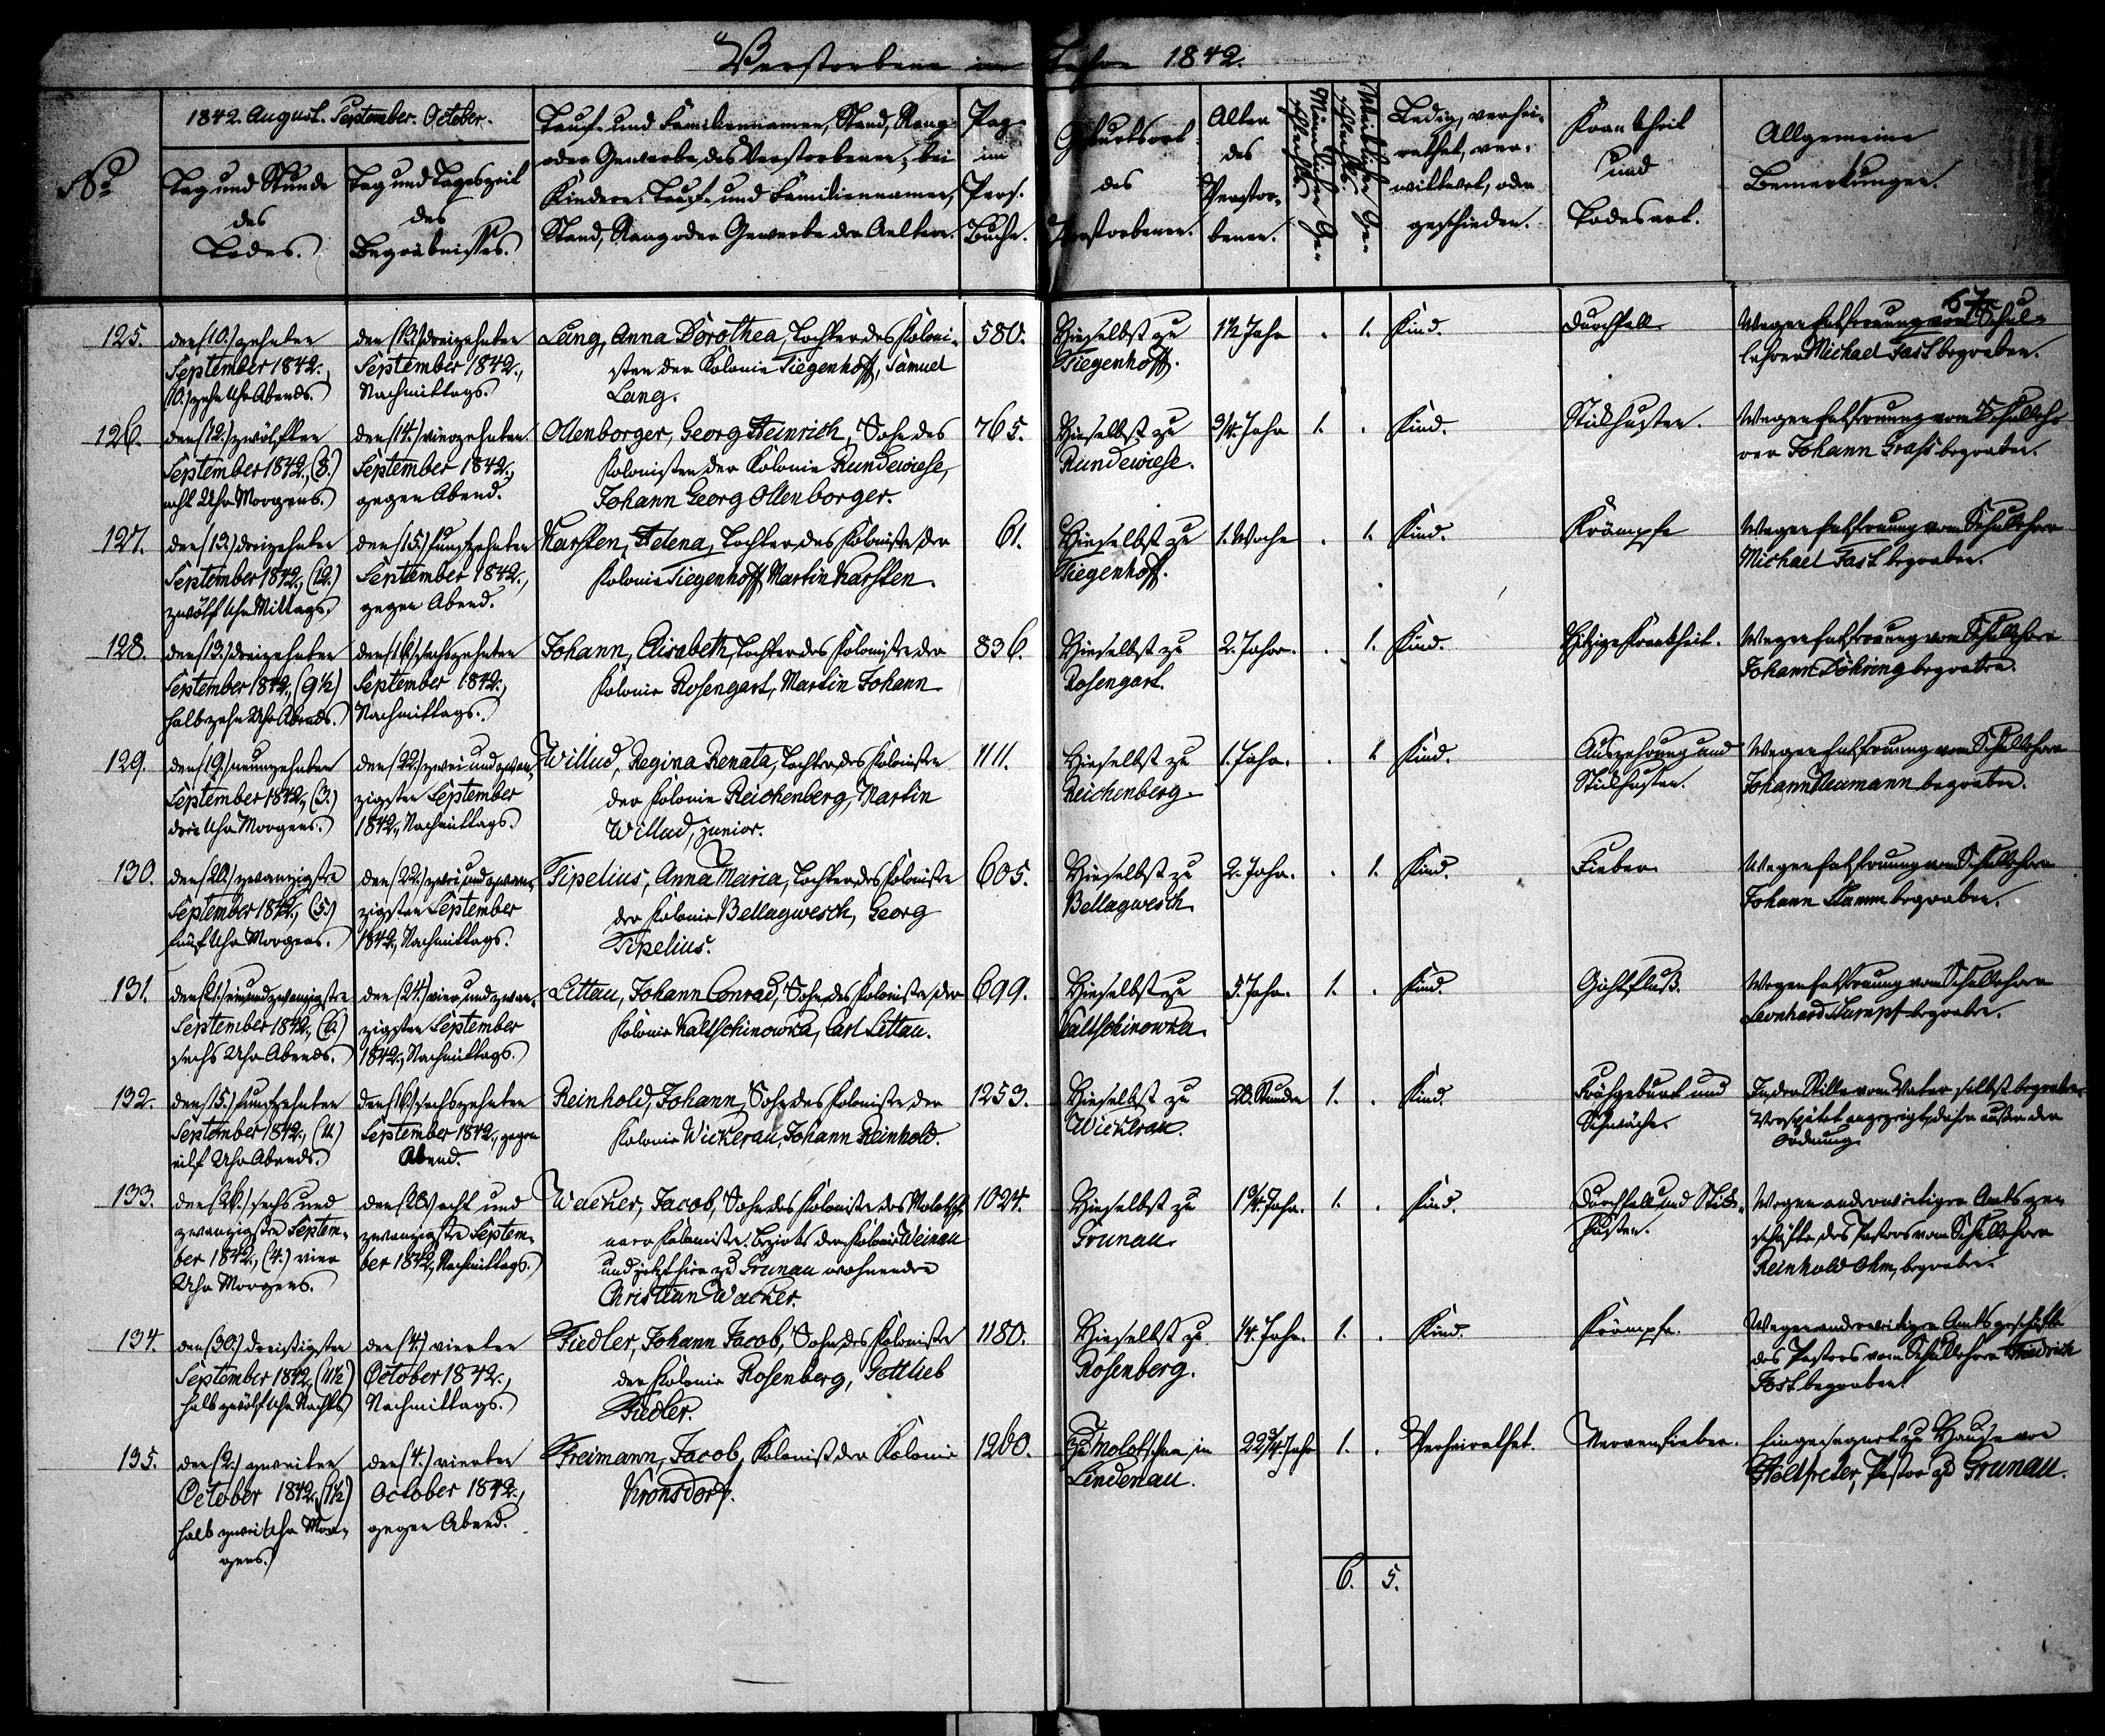 Verstorbene im Jahre 1842.
67
No
1842. August. September. October.
Tag und Stunde
des
Todes.
Tag und Tageszeit
des
Begräbnisses.
Tauf- und Familiennamen, Stand, Rang
oder Gewerbe des Verstorbenen; bei
Kindern: Tauf- und Familiennamen,
Stand, Rang oder Gewerbe der Aeltern.
Pag.
im
Pers.
Buche.
Geburtsort
des
Verstorbenen.
Alter
des
Verstor-
benen.
Männlichen Ge-
schlechts.
Weiblichen Ge-
schlechts.
Ledig, verhei-
rathet, ver-
wittwet, oder
geschieden.
Krankheit
und
Todesart.
Allgemeine
Bemerkungen.
125.
den (10.) zehnten
September 1842.,
(10.) zehn Uhr Abends.
den (13.) dreizehnten
September 1842.,
Nachmittags.
Lang, Anna Dorothea, Tochter des Koloni-
sten der Kolonie Tiegenhoff, Samuel
Lang.
580.
Hieselbst zu
Tiegenhoff.
1½ Jahr
. 1.
Kind.
Durchfall
Wegen Entfernung vom Schul-
lehrer Michael Fast begraben.
126.
den (12.) zwölften
September 1842., (8.)
acht Uhr Morgens.
den (14.) vierzehnten
September 1842.,
gegen Abend.
Ollenborger, Georg Heinrich, Sohn des
Kolonisten der Kolonie Rundewiese,
Johann Georg Ollenborger.
765.
Hieselbst zu
Rundewiese.
¾ Jahr
1. .
Kind.
Stickhusten.
Wegen Entfernung vom Schulleh-
rer Johann Grass begraben.
127.
den (13.) dreizehnten
September 1842., (12.)
zwölf Uhr Mittags.
den (15.) funfzehnten
September 1842.,
gegen Abend.
Karsten, Helena, Tochter des Kolonisten der
Kolonie Tiegenhoff, Martin Karsten.
61.
Hieselbst zu
Tiegenhoff.
1. Woche
. 1.
Kind.
Krämpfe
Wegen Entfernung vom Schullehrer
Michael Fast begraben.
128.
den (13.) dreizehnten
September 1842., (9½)
halb zehn Uhr Abends.
den (16.) sechszehnten
September 1842.,
Nachmittags.
Johann, Elisabeth, Tochter des Kolonisten der
Kolonie Rosengart, Martin Johann.
836.
Hieselbst zu
Rosengart.
2. Jahr.
. 1.
Kind.
Hitzige Krankheit.
Wegen Entfernung vom Schullehrer
Johann Döhring begraben.
129.
den (19.) neunzehnten
September 1842., (3.)
drei Uhr Morgens.
den (22.) zwei und zwan-
zigsten September
1842., Nachmittags.
Willud, Regina Renata, Tochter des Kolonisten
der Kolonie Reichenberg, Martin
Willud, junior.
1111.
Hieselbst zu
Reichenberg.
1. Jahr.
. 1.
Kind.
Auszehrung und
Stickhusten.
Wegen Entfernung vom Schullehrer
Johann Neumann begraben.
130.
den (20.) zwanzigsten
September 1842., (5.)
fünf Uhr Morgens.
den (22.) zwei und zwan-
zigsten September
1842., Nachmittags.
Tipelius, Anna Maria, Tochter des Kolonisten
der Kolonie Bellagwesch, Georg
Tipelius.
605.
Hieselbst zu
Bellagwesch.
2. Jahr.
. 1.
Kind.
Fieber
Wegen Entfernung vom Schullehrer
Johann begraben.
131.
den (21.) einundzwanzigsten
September 1842., (6.)
sechs Uhr Abends.
den (24.) vier und zwan-
zigsten September
1842., Nachmittags.
Littau, Johann Conrad, Sohn des Kolonisten der
Kolonie Kaltschinowka, Carl Littau.
699.
Hieselbst zu
Kaltschinowka.
5. Jahr.
1. .
Kind.
Gichtfluß.
Wegen Entfernung vom Schullehrer
Leonhard begraben.
132.
den (15.) funfzehnten
September 1842., (11.)
eilf Uhr Abends.
den (16.) sechszehnten
September 1842., gegen
Abend.
Reinhold, Johann, Sohn des Kolonisten der
Kolonie Wickerau, Johann Reinhold.
1253.
Hieselbst zu
Wickerau.
20. Stunden
1. .
Kind.
Frühgeburt und
Schwäche.
In der Stille vom Vater selbst begraben.
Verspätet angezeigt, daher außer der
Ordnung.
133.
den (26.) sechs und
zwanzigsten Septem-
ber 1842., (4.) vier
Uhr Morgens.
den (28.) acht und
zwanzigsten Septem-
ber 1842., Nachmittags.
Wacker, Jacob, Sohn des Kolonisten des Molotsch-
naer Kolonisten-Bezirks der Kolonie Weinau
und jetzt hier zu Grunau wohnenden
Christian Wacker.
1024.
Hieselbst zu
Grunau.
1¼ Jahr.
1. .
Kind.
Durchfall und Stick-
husten.
Wegen anderweitiger Amtsge-
schäfte des Pastors vom Schullehrer
Reinhold Ohm, begraben.
134.
den (30.) dreißigsten
September 1842., (11½)
halb zwölf Uhr Nachts.
den (4.) vierten
October 1842.,
Nachmittags.
Fiedler, Johann Jacob, Sohn des Kolonisten
der Kolonie Rosenberg, Gottlieb
Fiedler.
1180.
Hieselbst zu
Rosenberg.
¼ Jahr.
1. .
Kind.
Krämpfe.
Wegen anderweitiger Amtsgeschäfte
des Pastors vom Schullehrer Friedrich
Jost begraben.
135.
den (2.) zweiten
October 1842., (1½)
halb zwei Uhr Mor-
gens.
den (4.) vierten
October 1842.,
gegen Abend.
Freimann, Jacob, Kolonist der Kolonie
Kronsdorf.
1260.
Zu Molotschna in
Lindenau.
22¾ Jahr
1. .
Verheirathet.
Nervenfieber.
Eingesegnet zu Hause von
Holtfreter, Pastor zu Grunau.
6. 5.